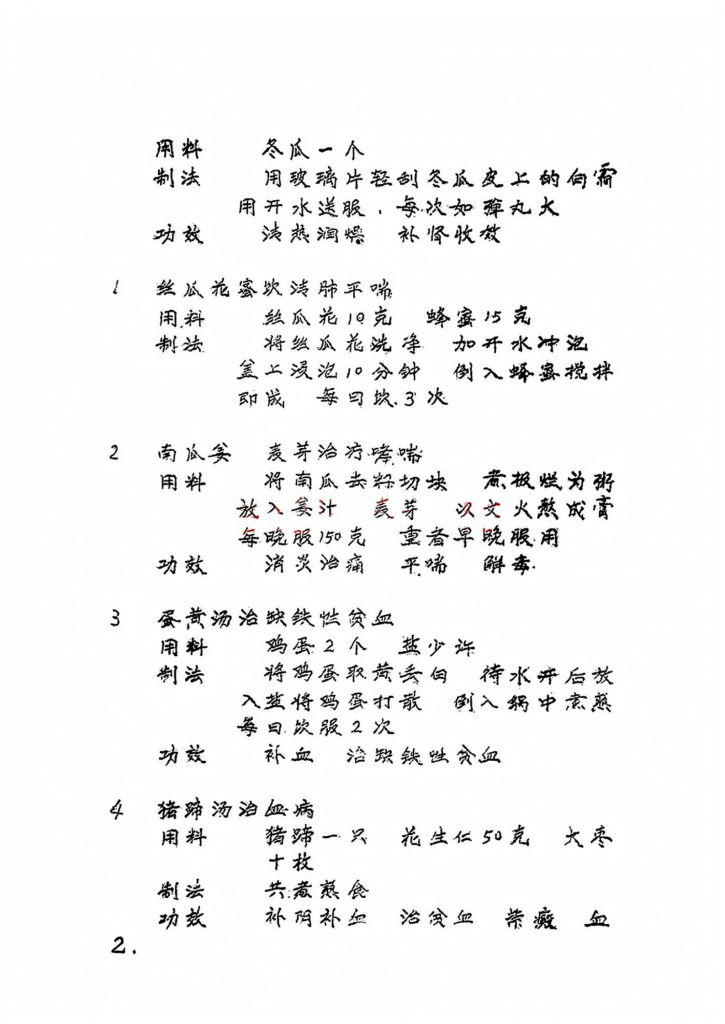 用料 冬瓜一个
制法 用玻璃片轻刮冬瓜皮上的白霜
用开水送服，每次如弹丸大
功效 清热润燥 补肾收敛
1 丝瓜花蜜饮清肺平喘
用料 丝瓜花10克 蜂蜜15克
制法 将丝瓜花洗净 加开水冲泡
盖上浸泡10分钟 倒入蜂蜜搅拌
即成 每日饮3次
2 南瓜姜 麦芽治疗哮喘
用料 将南瓜去籽切块 煮极烂为粥
放入姜汁 麦芽 以文火熬成膏
每晚服150克 重者早晚服用
功效 消炎治痛 平喘 解毒
3 蛋黄汤治缺铁性贫血
用料 鸡蛋2个 盐少许
制法 将鸡蛋取黄去白 待水开后放
入盐将鸡蛋打散 倒入锅中煮熟
每日饮服2次
功效 补血 治缺铁性贫血
4 猪蹄汤治血病
用料 猪蹄一只 花生仁50克 大枣
十枚
制法 共煮熟食
功效 补阴补血 治贫血 紫癜 血
2.